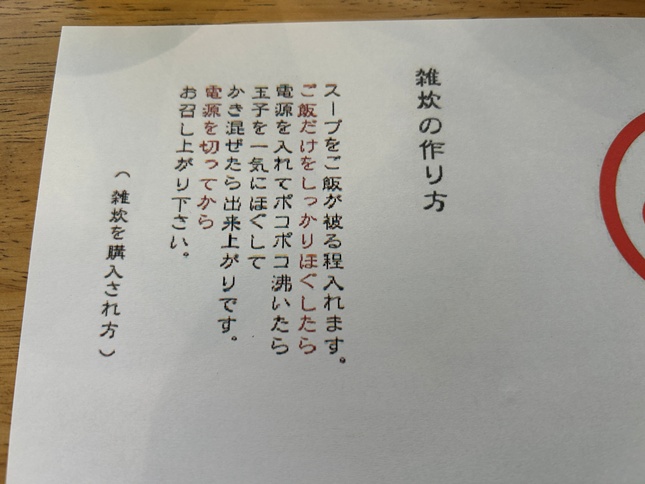 雑炊の作り方
スープをご飯が被る程入れます。
ご飯だけをしっかりほぐしたら
電源を入れてポコポコ沸いたら
玉子を一気にほぐして
かき混ぜたら出来上がりです。
電源を切ってから
お召し上がり下さい。
(雑炊を購入され方)